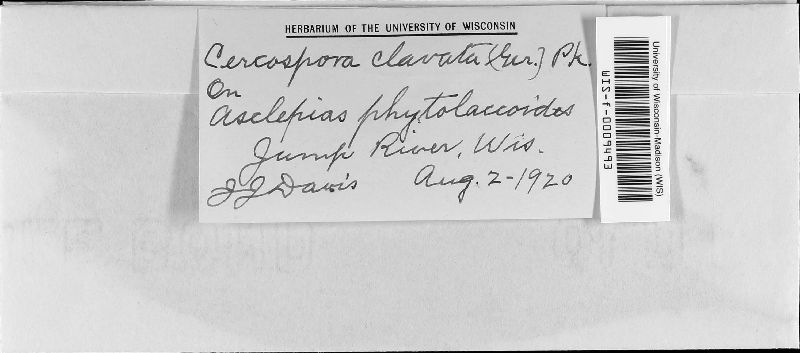 HERBARIUM OF THE UNIVERSITY OF WISCONSIN
Cercospora clavata (Ger.) Pk.
On
Asclepias phytolaccoides
Jump River, Wis.
J J Davis Aug. 2-1920
University of Wisconsin-Madison (WIS)
WIS-f-0009493